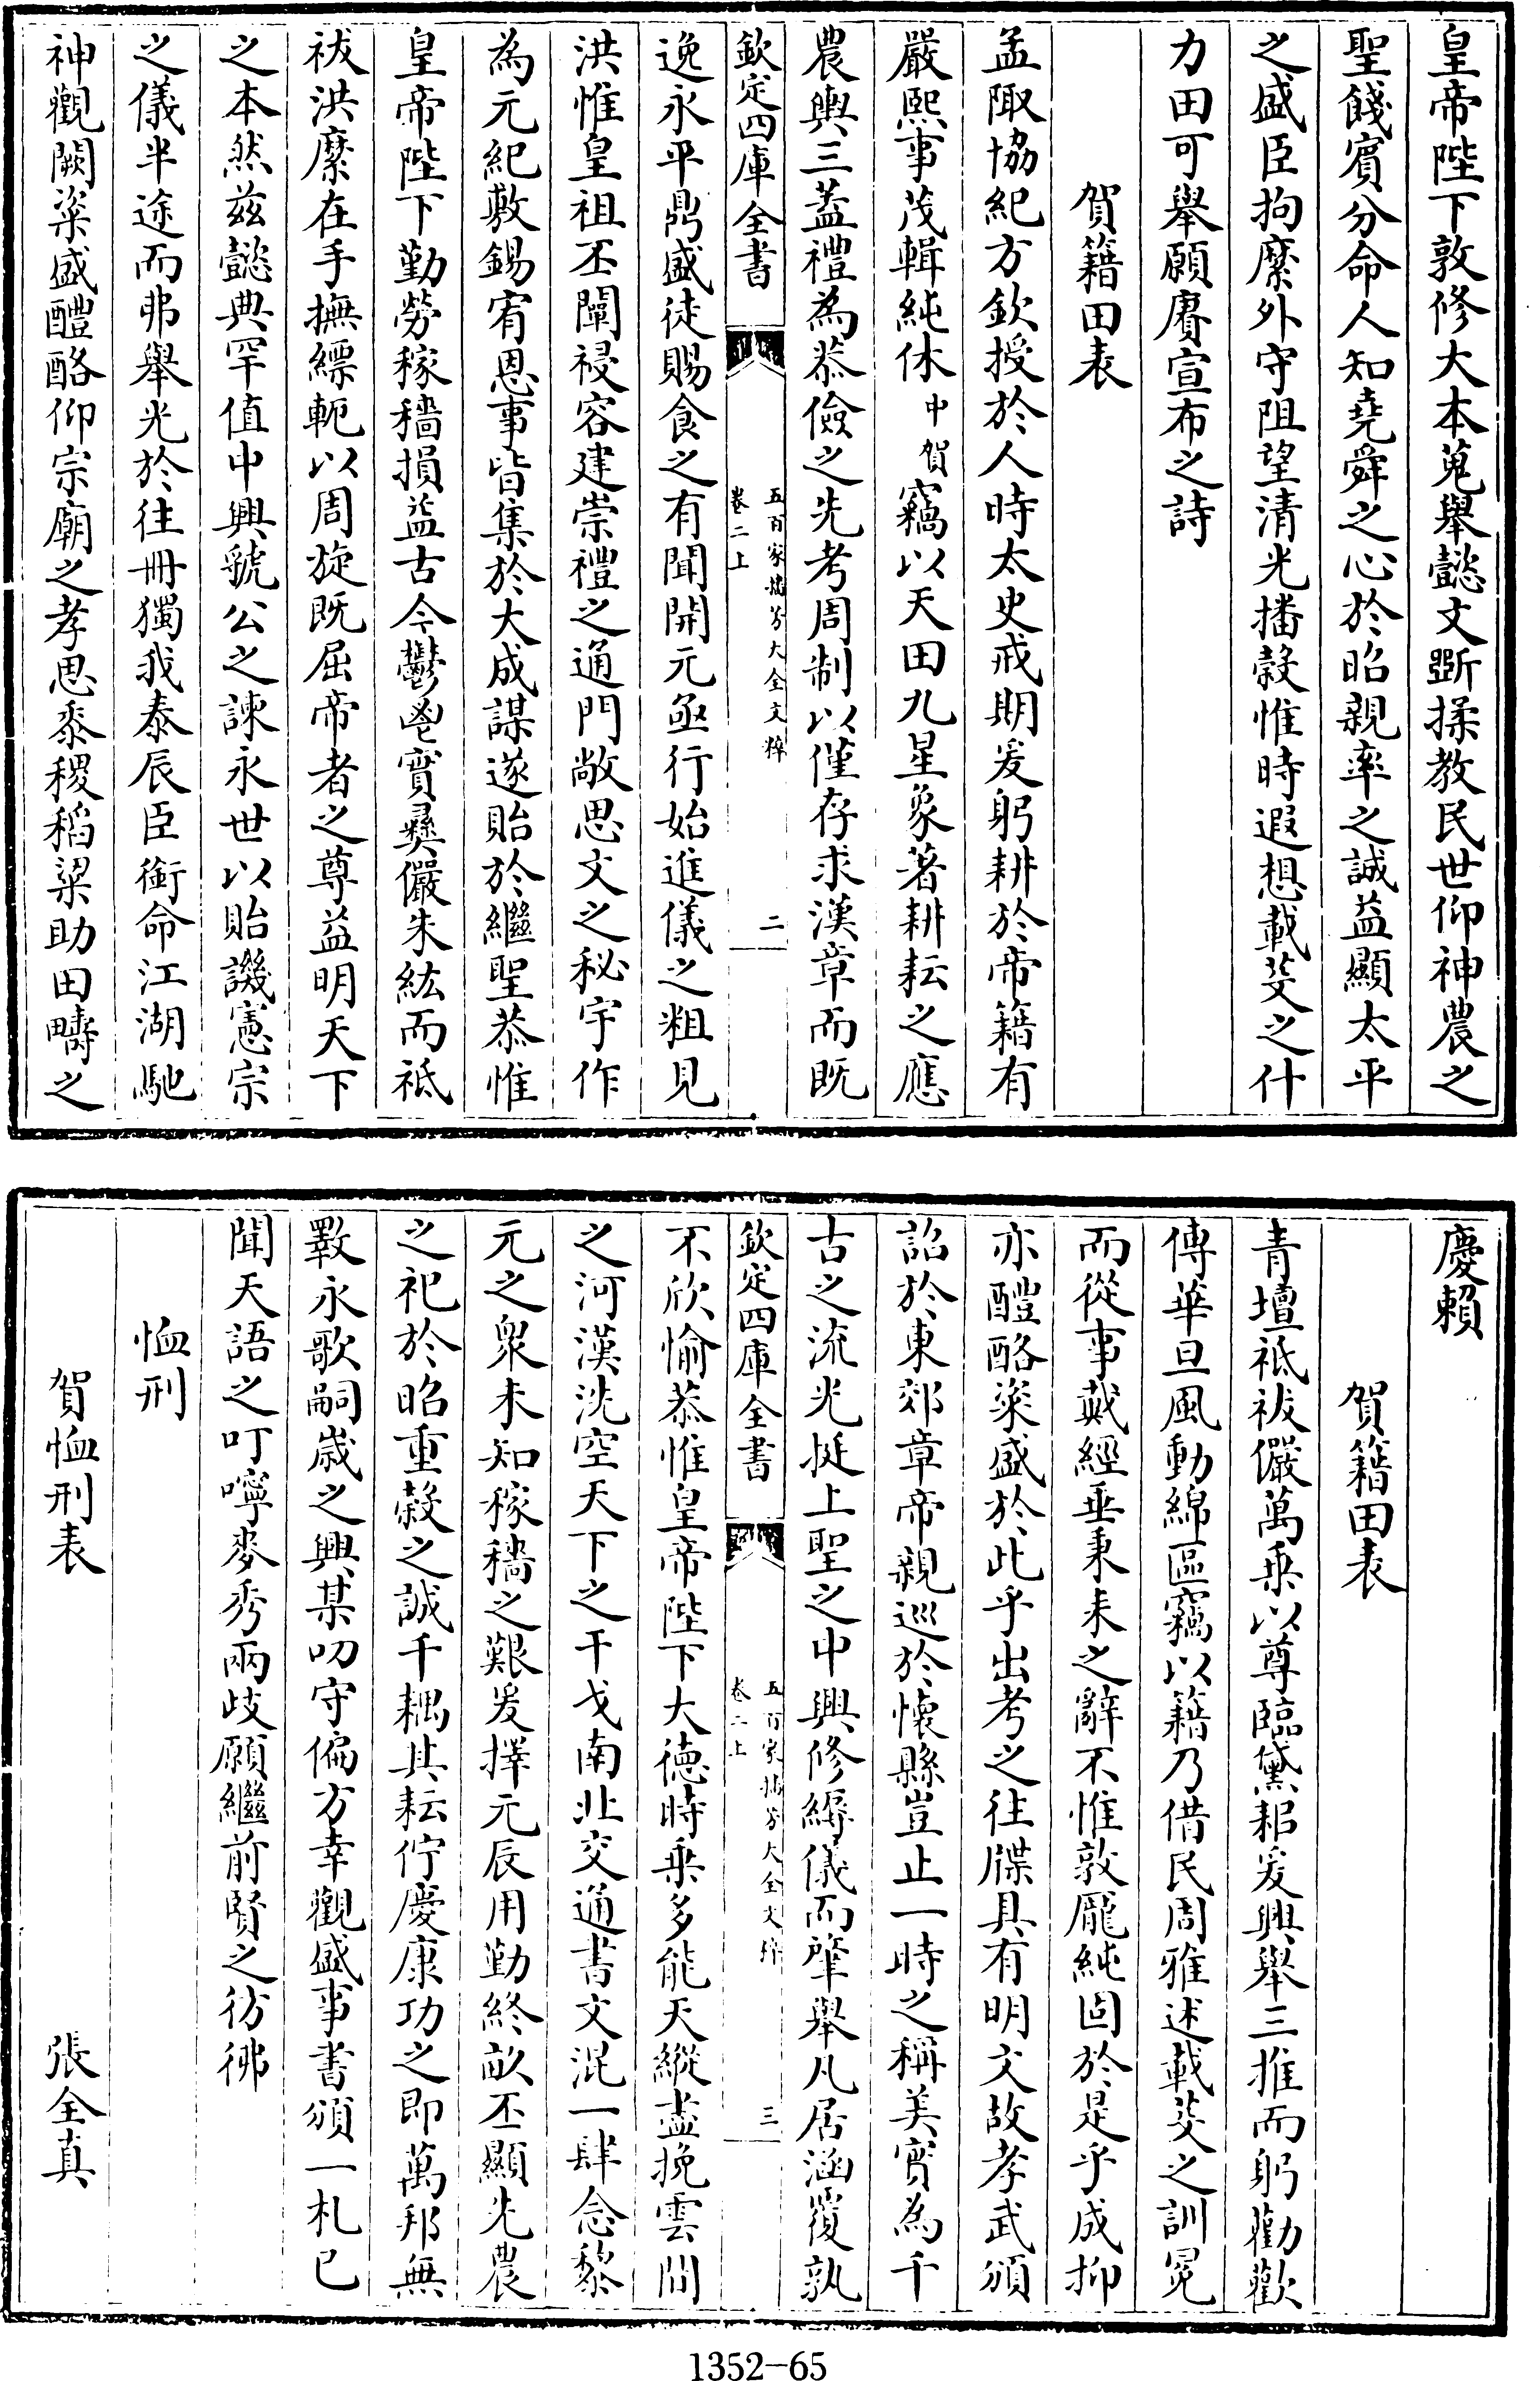 皇帝陛下敦修大本蒐舉懿文斲揉教民世仰神農之
聖餞賓分命人知堯舜之心於昭親率之誠益顯太平
之盛臣拘縻外守阻望清光播穀惟時遐想載芟之什
力田可舉願賡宣布之詩
賀籍田表
孟陬協紀方欽授於人時太史戒期爰躬耕於帝籍有
嚴熙事茂輯純休中賀竊以天田九星象著耕耘之應
農輿三蓋禮為恭儉之先考周制以僅存求漢章而既
欽定四庫全書
五百家播芳大全文粹
卷二上
二
逸永平鼎盛徒賜食之有聞開元亟行始進儀之粗見
洪惟皇祖丕闡祲容建崇禮之通門敞思文之秘宇作
為元紀敷錫宥恩事皆集於大成謀遂貽於繼聖恭惟
皇帝陛下勤勞稼穡損益古今鬱鬯實彞儼朱紘而祗
祓洪縻在手撫縹軛以周旋既屈帝者之尊益明天下
之本然茲懿典罕值中興虢公之諫永世以貽譏憲宗
之儀半途而弗舉光於往冊獨我泰辰臣銜命江湖馳
神觀闕粢盛醴酪仰宗廟之孝思黍稷稻粱助田疇之
慶賴
賀籍田表
青壇祗祓儼萬乘以尊臨黛耜爰興舉三推而躬勸歡
傳華旦風動綿區竊以籍乃借民周雅述載芟之訓冕
而從事戴經垂秉耒之辭不惟敦厖純固於是乎成抑
亦醴酪粢盛於此乎出考之往牒具有明文故孝武頒
詔於東郊章帝親巡於懷縣豈止一時之稱美實為千
古之流光挺上聖之中興修縟儀而肇舉凡居涵覆孰
欽定四庫全書
五百家播芳大全文粹
卷二上
三
不欣愉恭惟皇帝陛下大德時乘多能天縱盡挽雲間
之河漢洗空天下之干戈南北交通書文混一肆念黎
元之衆未知稼穡之艱爰擇元辰用勤終畝丕顯先農
之祀於昭重穀之誠千耦其耘佇慶康功之即萬邦無
斁永歌嗣歲之興某叨守偏方幸觀盛事書頒一札已
聞天語之叮嚀麥秀兩歧願繼前賢之彷彿
恤刑
賀恤刑表 張全真
1352-65